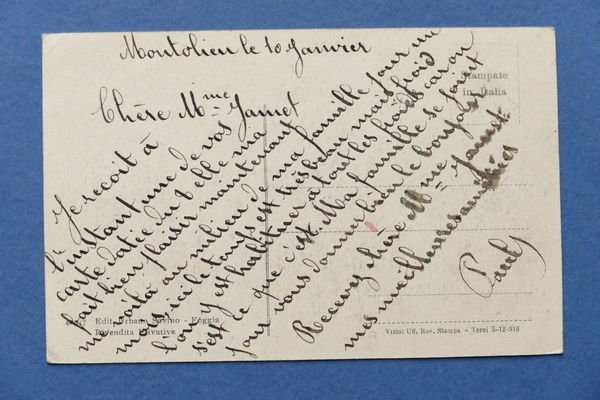 Montolieu le 10 Janvier
Chère Mme Jamet
Je reçoit à
l'instant une de vos
carte datée du 1 elle ma
fait bien plaisir maintenant
me voila au milieu de ma famille pour un
mois ici le temps est très beau mais froid
l'on y est habituer a tout les froids car on
s'est le que c'est. Ma famille se joint
pour vous donner bien le bonjour
Recevez chère Mme Jamet
mes meilleures amitiés
Paul
Stampate
in Italia
Edit. Urbano Savino - Foggia
Rivendita Privative
Visto: Uff. Rev. Stampa - Terni 5-12-916